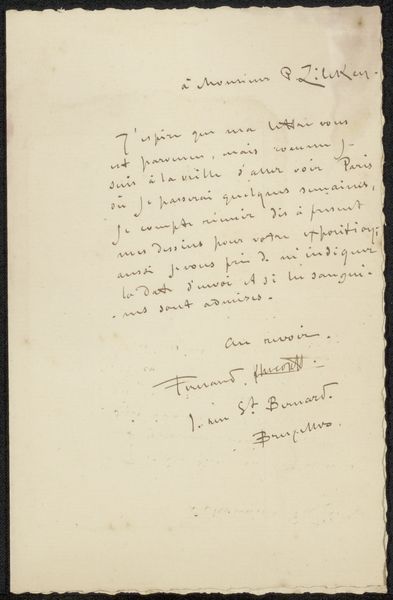 à Monsieur P Zilcken.
J'espère que ma lettre vous
est parvenue, mais comme je
suis à la veille d'aller voir Paris
où je passerai quelques semaines,
je compte réunir dès à présent
mes dessins pour votre exposition;
aussi je vous prie de m'indiquer
la date d'envoi et si les sangui-
nes sont admises.
au revoir.
Fernand
1. rue St Bernard.
Bruxelles.